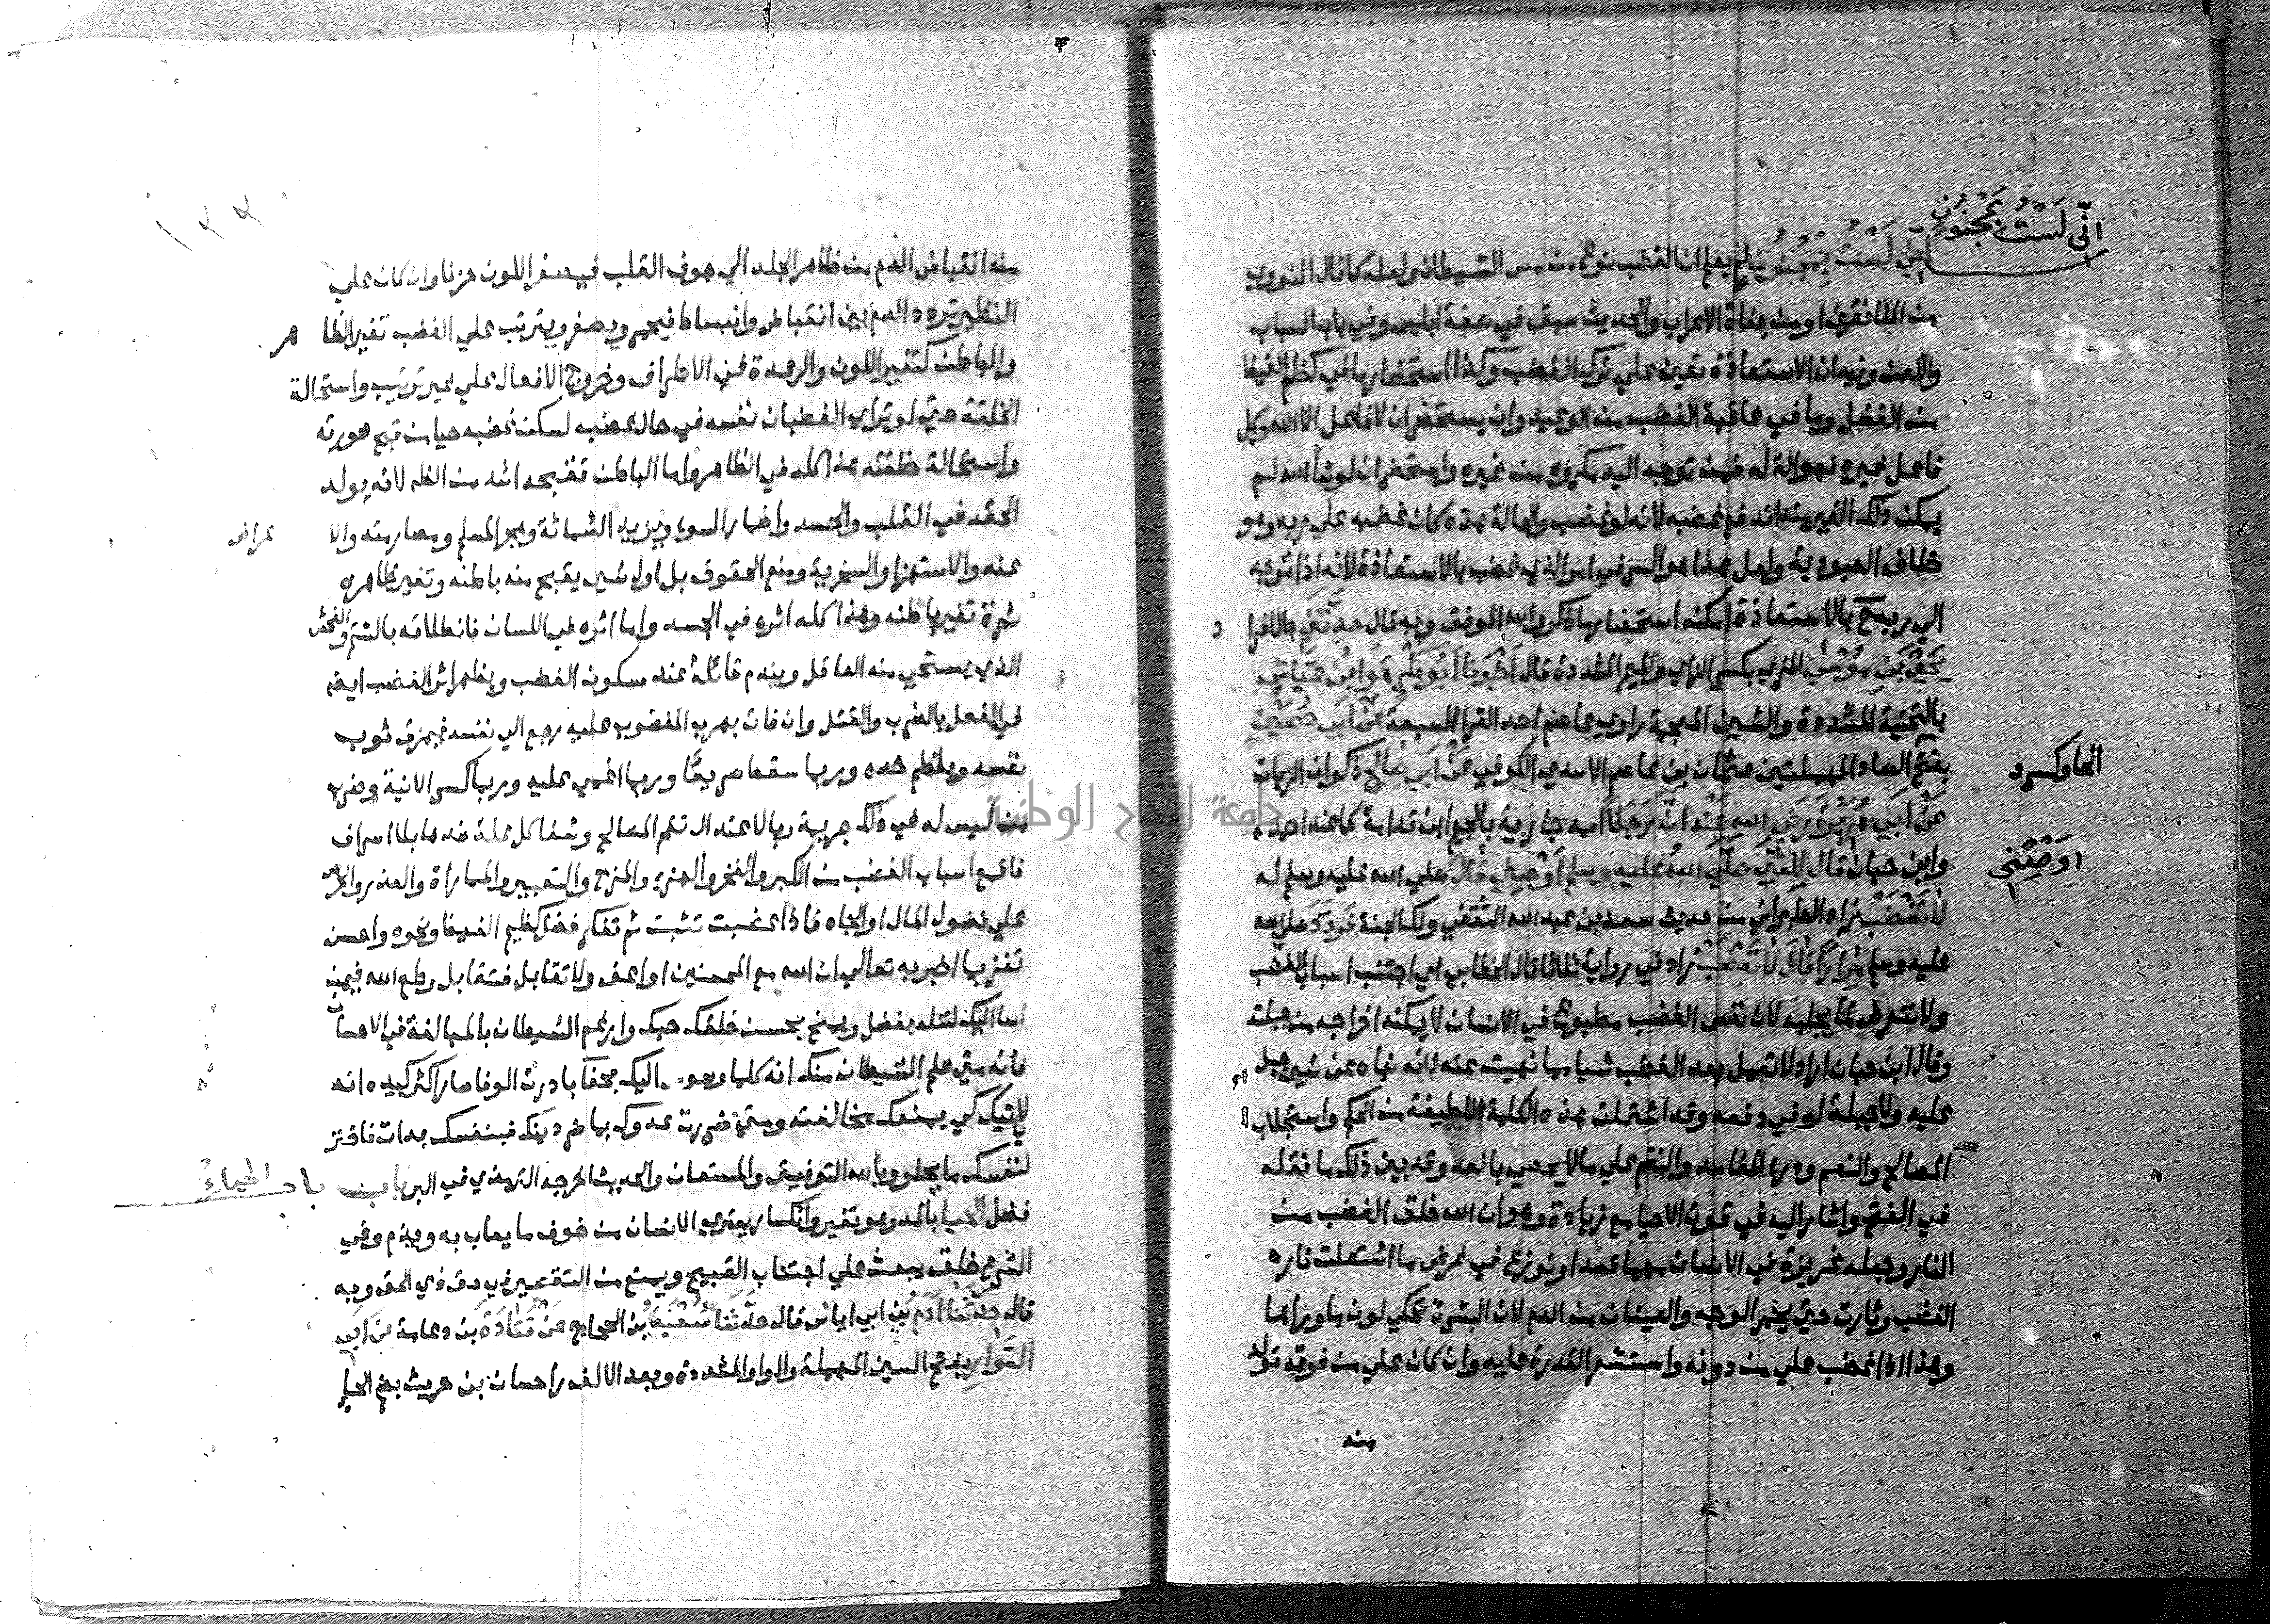 إني لست بمجنون
إني لست بمجنون لم يعلم ان الغضب نوع من مس الشيطان ولعله كما قال النووي
من المنافقين او من جفاة الاعراب والحديث سبق في صفة ابليس وفي باب السباب
واللعن وفيه ان الاستعاذة تعين علي ترك الغضب وكذا استحضار ما في كظم الغيظ
من الفضل وما في عاقبة الغضب من الوعيد وان يستحضر ان لا فاعل الا الله وكل
فاعل غيره فهو الة له فمن توجه اليه مكروه من غيره واستحضر ان لو شا الله لم
يمكن ذلك الغير منه اندفع غضبه لانه لو غضب والحالة هذه كان غضبه علي ربه وهو
خلاف العبودية ولعل هذا هو السر في امر الذي غضب بالاستعاذة لانه اذا توجه
الي ربه بالاستعاذة امكنه استحضار ما ذكر والله الموفق وبه قال حدثني بالافرا
د
يحيى بن يوسف الزمي بكسر الزاي والميم المشددة قال اخبرنا ابو بكر هو ابن عياش
بالتحتية المشددة والشين المعجمة راوي عاصم احد القرا السبعة عن ابي حصين
بفتح الصاد المهملتين عثمان بن عاصم الاسدي الكوفي عن ابي صالح ذكوان الزيات
الحا وكسر
عن ابي هريرة رضي الله عنه ان رجلا اسمه جارية بالجيم ابن قدامة كما عند احمد
وابن حبان قال للنبي صلي الله عليه وسلم اوصني قال صلي الله عليه وسلم له
اوصني
لا تغضب زاد الطبراني من حديث سفيان بن عبد الله الثقفي ولك الجنة فردد علي الله
عليه وسلم مرارا قال لا تغضب زاد في رواية ثلاثا قال الخطابي اي اجتنب اسباب الغضب
ولا تتعرض لما يجلبه لان نفس الغضب مطبوع في الانسان لا يمكنه اخراجه من جبلته
وقال ابن حبان اراد لا تعمل بعد الغضب شيا مما نهيت عنه لانه نهاه عن شي جبل
عليه ولا حيلة له في دفعه وقد اشتملت هذه الكلمة اللطيفة من الحكم واستجلاب
المصالح والنعم ودرء المفاسد والنقم علي ما لا يحصي بالعد وقد بين ذلك ما نقله
في الفتح واشار اليه في قوت الاحيا مع زيادة وهو ان الله خلق الغضب من
النار وجعله غريزة في الانسان مهما صد او نوزع في غرض ما اشتعلت ناره
الغضب وثارت حتي يحمر الوجه والعينان من الدم لان البشرة تحكي لون ما وراءها
وهذا اذا غضب علي من دونه واستشعر القدرة عليه وان كان علي من فوقه تولد
منه
منه انقباض الدم من ظاهر الجلد الي جوف القلب فيصفر اللون حزنا وان كان علي
النظير تردد الدم بين انقباض وانبساط فيحمر ويصفر ويترتب علي الغضب تغير الظا
هر
والباطن كتغير اللون والرعدة في الاطراف وخروج الافعال علي غير ترتيب واستحالة
الخلقة حتي لو تراءي الغضبان نفسه في حال غضبه لسكن غضبه حيا من قبح صورته
واستحالة خلقته هذا كله في الظاهر واما الباطن فقبحه اشد من الظاهر لانه يولد
الحقد في القلب والحسد واضمار السوء ويزيد الشماتة وهجر المسلم ومصارمته والا
عراض
عنه والاستهزا والسخرية ومنع الحقوق بل اول شي يقبح منه باطنه وتغير ظاهره
ثمرة تغير باطنه وهذا كله اثره في الجسد واما اثره في اللسان فانطلاقه بالشتم والفحش
الذي يستحي منه العاقل ويندم قائله عند سكون الغضب ويظهر اثر الغضب ايضا
في الفعل بالضرب والقتل وان فات بهرب المغضوب عليه رجع الي نفسه فيمزق ثوب
نفسه ويلطم خده وربما سقط صريعا وربما اغمي عليه وربما كسر الانية وضرب
من ليس له في ذلك جريمة وبالاعتدال تتم المصالح وشفا كل علة ضدها بلا اسراف
فاقمع اسباب الغضب من الكبر والفخر والهزء والمزح والتعيير والمماراة والغدر والحرص
علي فضول المال او الجاه فاذا غضبت تثبت ثم تفكر فضل كظم الغيظ ونحوه واحسن
تفز بما اخبر به تعالي ان الله مع المحسنين او اعف ولا تقابل فتقابل وطع الله فيمن
اسا اليك لتنله بفضل ويمنح بحسن خلقك حبك وارغم الشيطان بالمبالغة في الاحسان
فانه متي علم الشيطان منك انه كلما وصو اليك بجفا بادرت الوفا صار اكثر كيده انه
لا ياتيك كي يمنعك مخالفته ومتي ظفرت عدوك بما ضر دينك فبنفسك بدات فاختر
لنفسك ما يحلو وبالله التوفيق والمستعان والحديث اخرجه الترمذي في البر باب
باب الحياء
فضل الحيا بالمد وهو تغير وانكسار يعتري الانسان من خوف ما يعاب به ويذم وفي
الشرع خلق يبعث علي اجتناب القبيح ويمنع من التقصير في حق ذي الحق وبه
قال حدثنا ادم بن ابي اياس قال حدثنا شعبة بن الحجاج عن قتادة بن دعامة عن ابي
السوار بفتح السين المهملة والواو المشددة وبعد الالف را حسان بن حريث بضم الحا